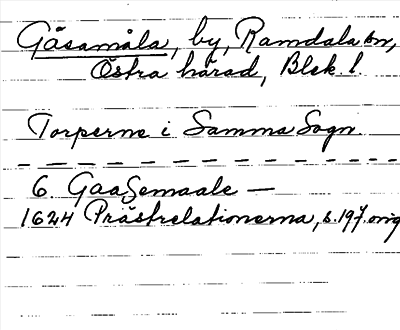 Gåsamåla, by, Ramdala sn,
Östra härad, Blek. l.
Torperne i Samma Sogn.
6. GaaSemaale —
1624 Prästrelationerna, s. 197. orig